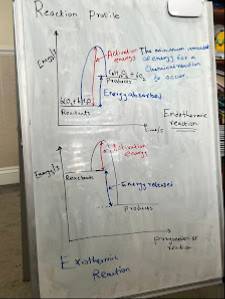 Reaction Profile
Energy/s
Activation energy
The minimum amount of energy for a chemical reaction to occur.
Products
Reactants
Energy absorbed
time/s
Endothermic reaction
Energy/s
Activation energy
Reactants
Energy released
Products
progression of reaction
Exothermic Reaction